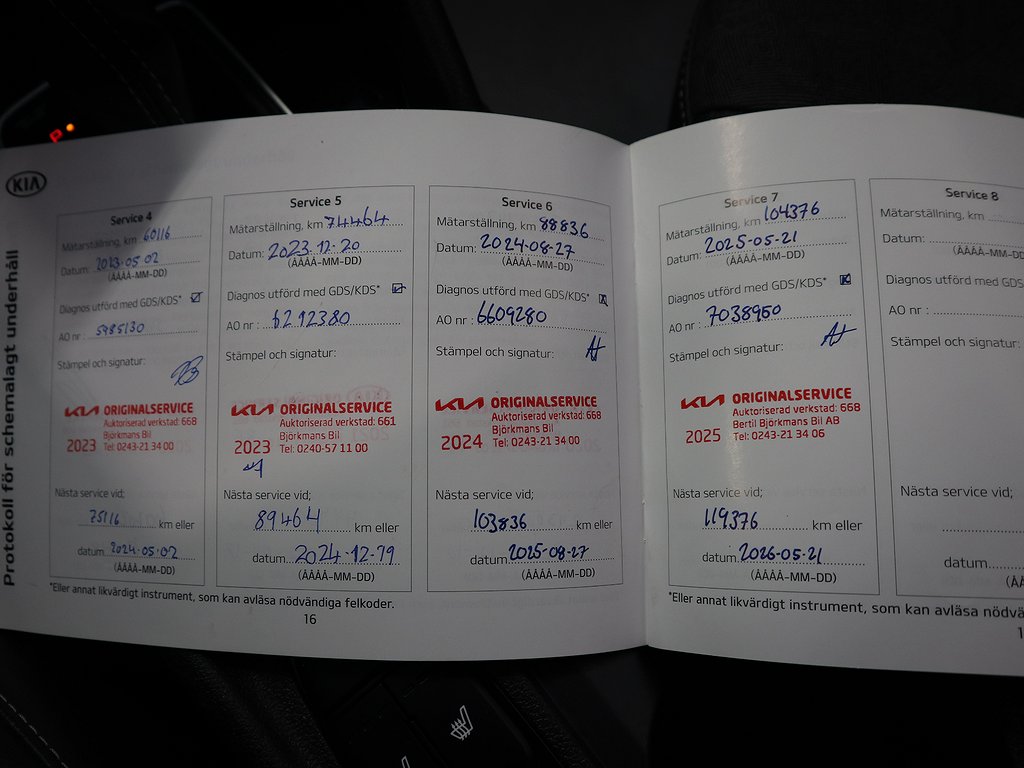 KIA
Protokoll för schemalagt underhåll
Service 4
Mätarställning, km 60116
Datum: 2023-05-02
(ÅÅÅÅ-MM-DD)
Diagnos utförd med GDS/KDS*
AO nr : 5985130
Stämpel och signatur:
KIA ORIGINALSERVICE
Auktoriserad verkstad: 668
Björkmans Bil
2023 Tel: 0243-21 34 00
Nästa service vid;
75116 km eller
datum 2024-05-02
(ÅÅÅÅ-MM-DD)
Service 5
Mätarställning, km 74464
Datum: 2023-12-20
(ÅÅÅÅ-MM-DD)
Diagnos utförd med GDS/KDS*
AO nr : 6292380
Stämpel och signatur:
KIA ORIGINALSERVICE
Auktoriserad verkstad: 661
Björkmans Bil
2023 Tel: 0240-57 11 00
Nästa service vid;
89464 km eller
datum 2024-12-19
(ÅÅÅÅ-MM-DD)
Service 6
Mätarställning, km 88836
Datum: 2024-08-27
(ÅÅÅÅ-MM-DD)
Diagnos utförd med GDS/KDS*
AO nr : 6609280
Stämpel och signatur:
KIA ORIGINALSERVICE
Auktoriserad verkstad: 668
Björkmans Bil
2024 Tel: 0243-21 34 00
Nästa service vid;
103836 km eller
datum 2025-08-27
(ÅÅÅÅ-MM-DD)
*Eller annat likvärdigt instrument, som kan avläsa nödvändiga felkoder.
16
Service 7
Mätarställning, km 104376
Datum: 2025-05-21
(ÅÅÅÅ-MM-DD)
Diagnos utförd med GDS/KDS*
AO nr : 7038950
Stämpel och signatur:
KIA ORIGINALSERVICE
Auktoriserad verkstad: 668
Bertil Björkmans Bil AB
2025 Tel: 0243-21 34 06
Nästa service vid;
119376 km eller
datum 2026-05-21
(ÅÅÅÅ-MM-DD)
Service 8
Mätarställning, km
Datum:
(ÅÅÅÅ-MM-DD
Diagnos utförd med GDS
AO nr :
Stämpel och signatur:
Nästa service vid;
datum
(ÅÅ
*Eller annat likvärdigt instrument, som kan avläsa nödvä